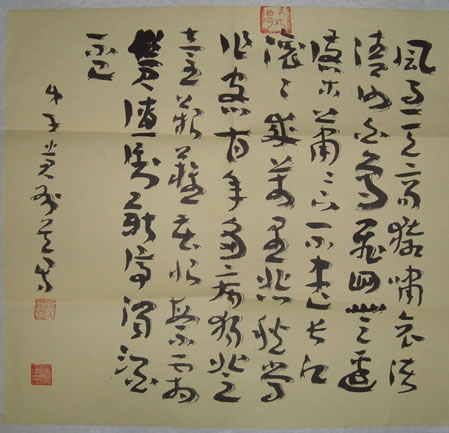 風急天高猿嘯哀渚
清沙白鳥飛回無邊
落木蕭々下不盡長江
滾々來萬里悲秋常
作客百年多病獨登
臺艱難苦恨繁霜
鬢潦倒新停濁酒
杯